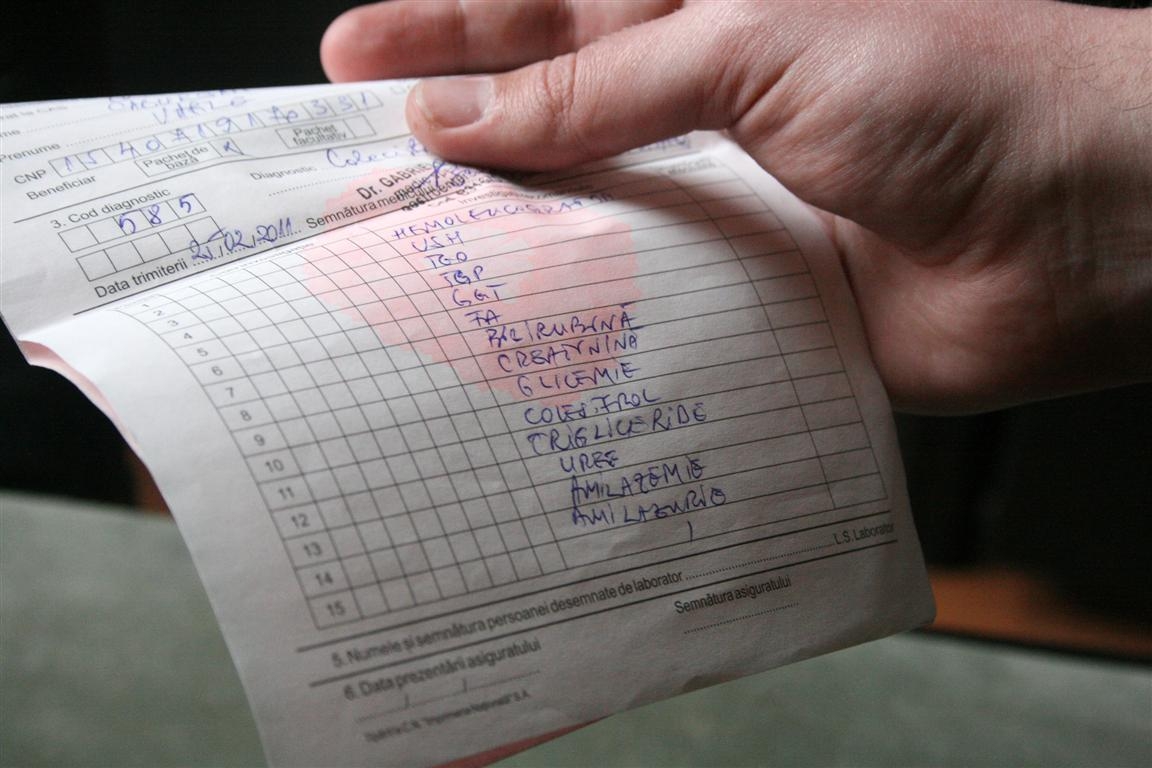 Prenume
CNP
Beneficiar Pachet de bază x Pachet facultativ
3. Cod diagnostic Diagnostic
585 Dr.
Data trimiterii 25.02.2011 Semnătura medicului
HEMOLEUCOGRAMA
1 VSH
2 TGO
3 TGP
4 GGT
5 FA
6 BILIRUBINĂ
7 CREATININA
8 GLICEMIE
9 COLESTROL
10 TRIGLICERIDE
11 UREE
12 AMILAZEMIE
13 AMILAZURIE
14
15
5. Numele și semnătura persoanei desemnate de laborator L.S. Laborator
6. Data prezentării asiguratului Semnătura asiguratului